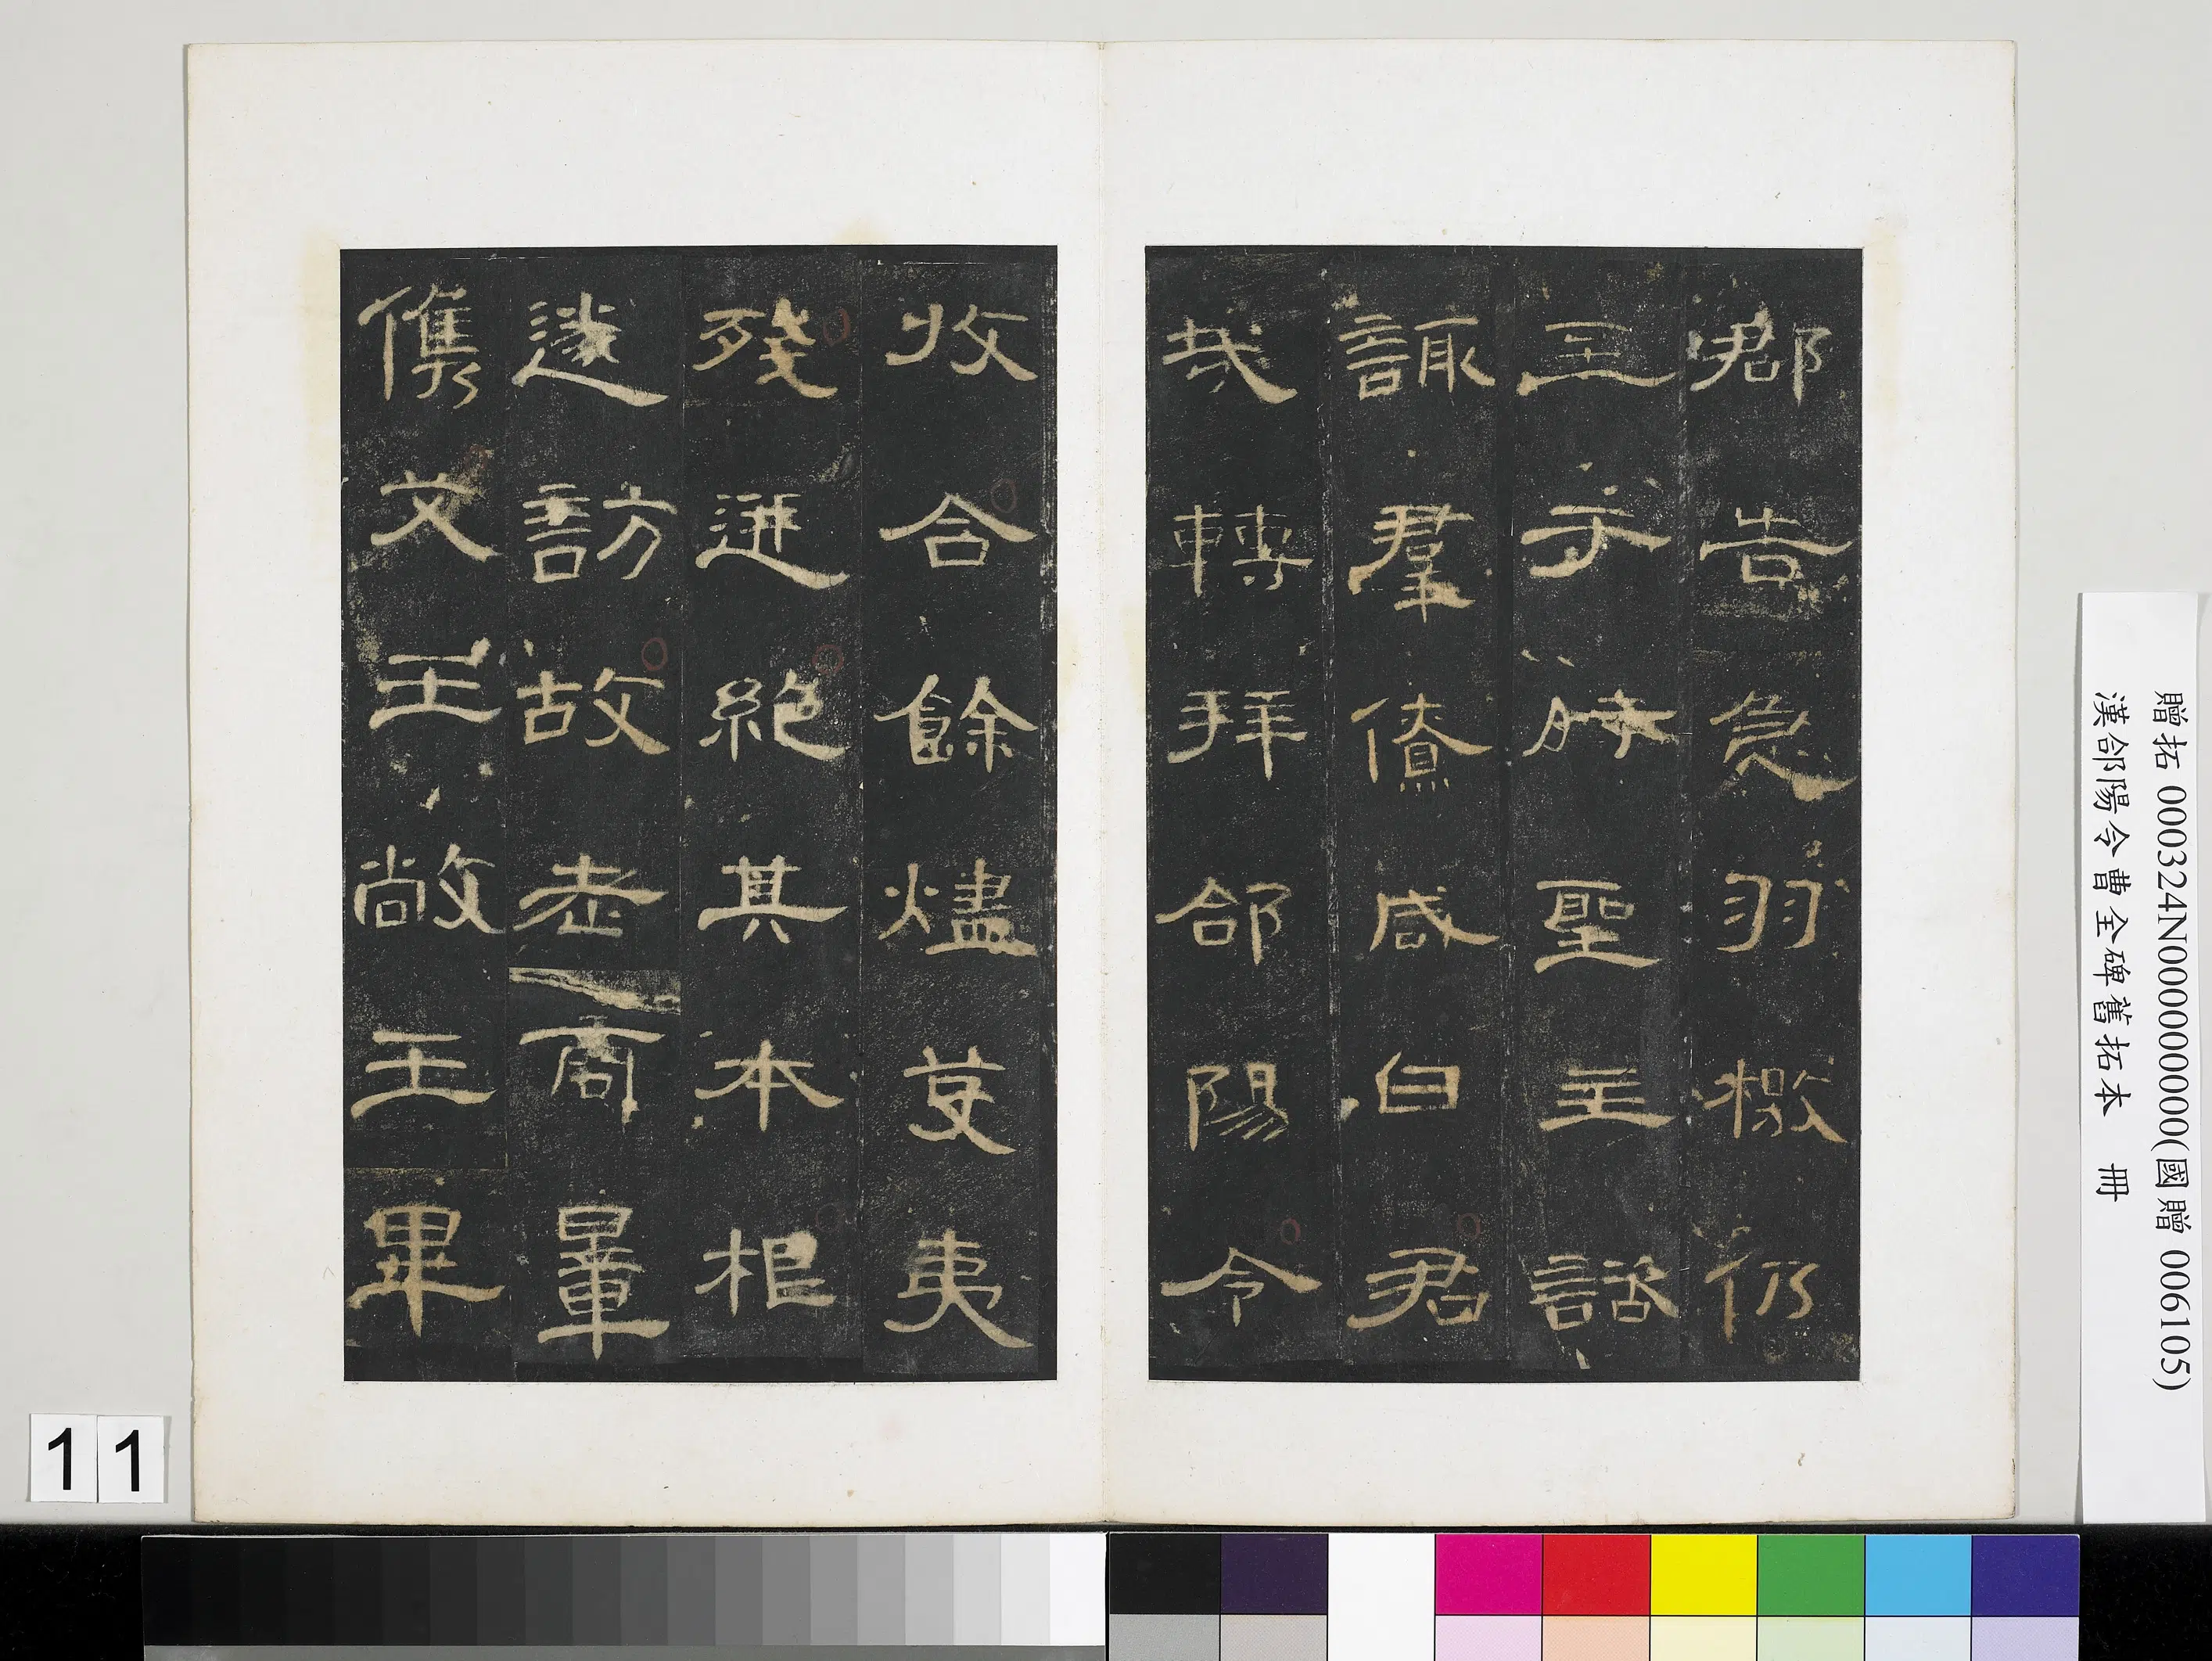 郡告急羽檄仍
至于時聖主諮
諏羣僚咸曰君
哉轉拜郃陽令
收合餘燼芟夷
殘迸絶其本根
遂訪故老商暈
儁艾王敞王畢
贈拓 000324N000000000(國贈 006105)
漢郃陽令曹全碑舊拓本 冊
11